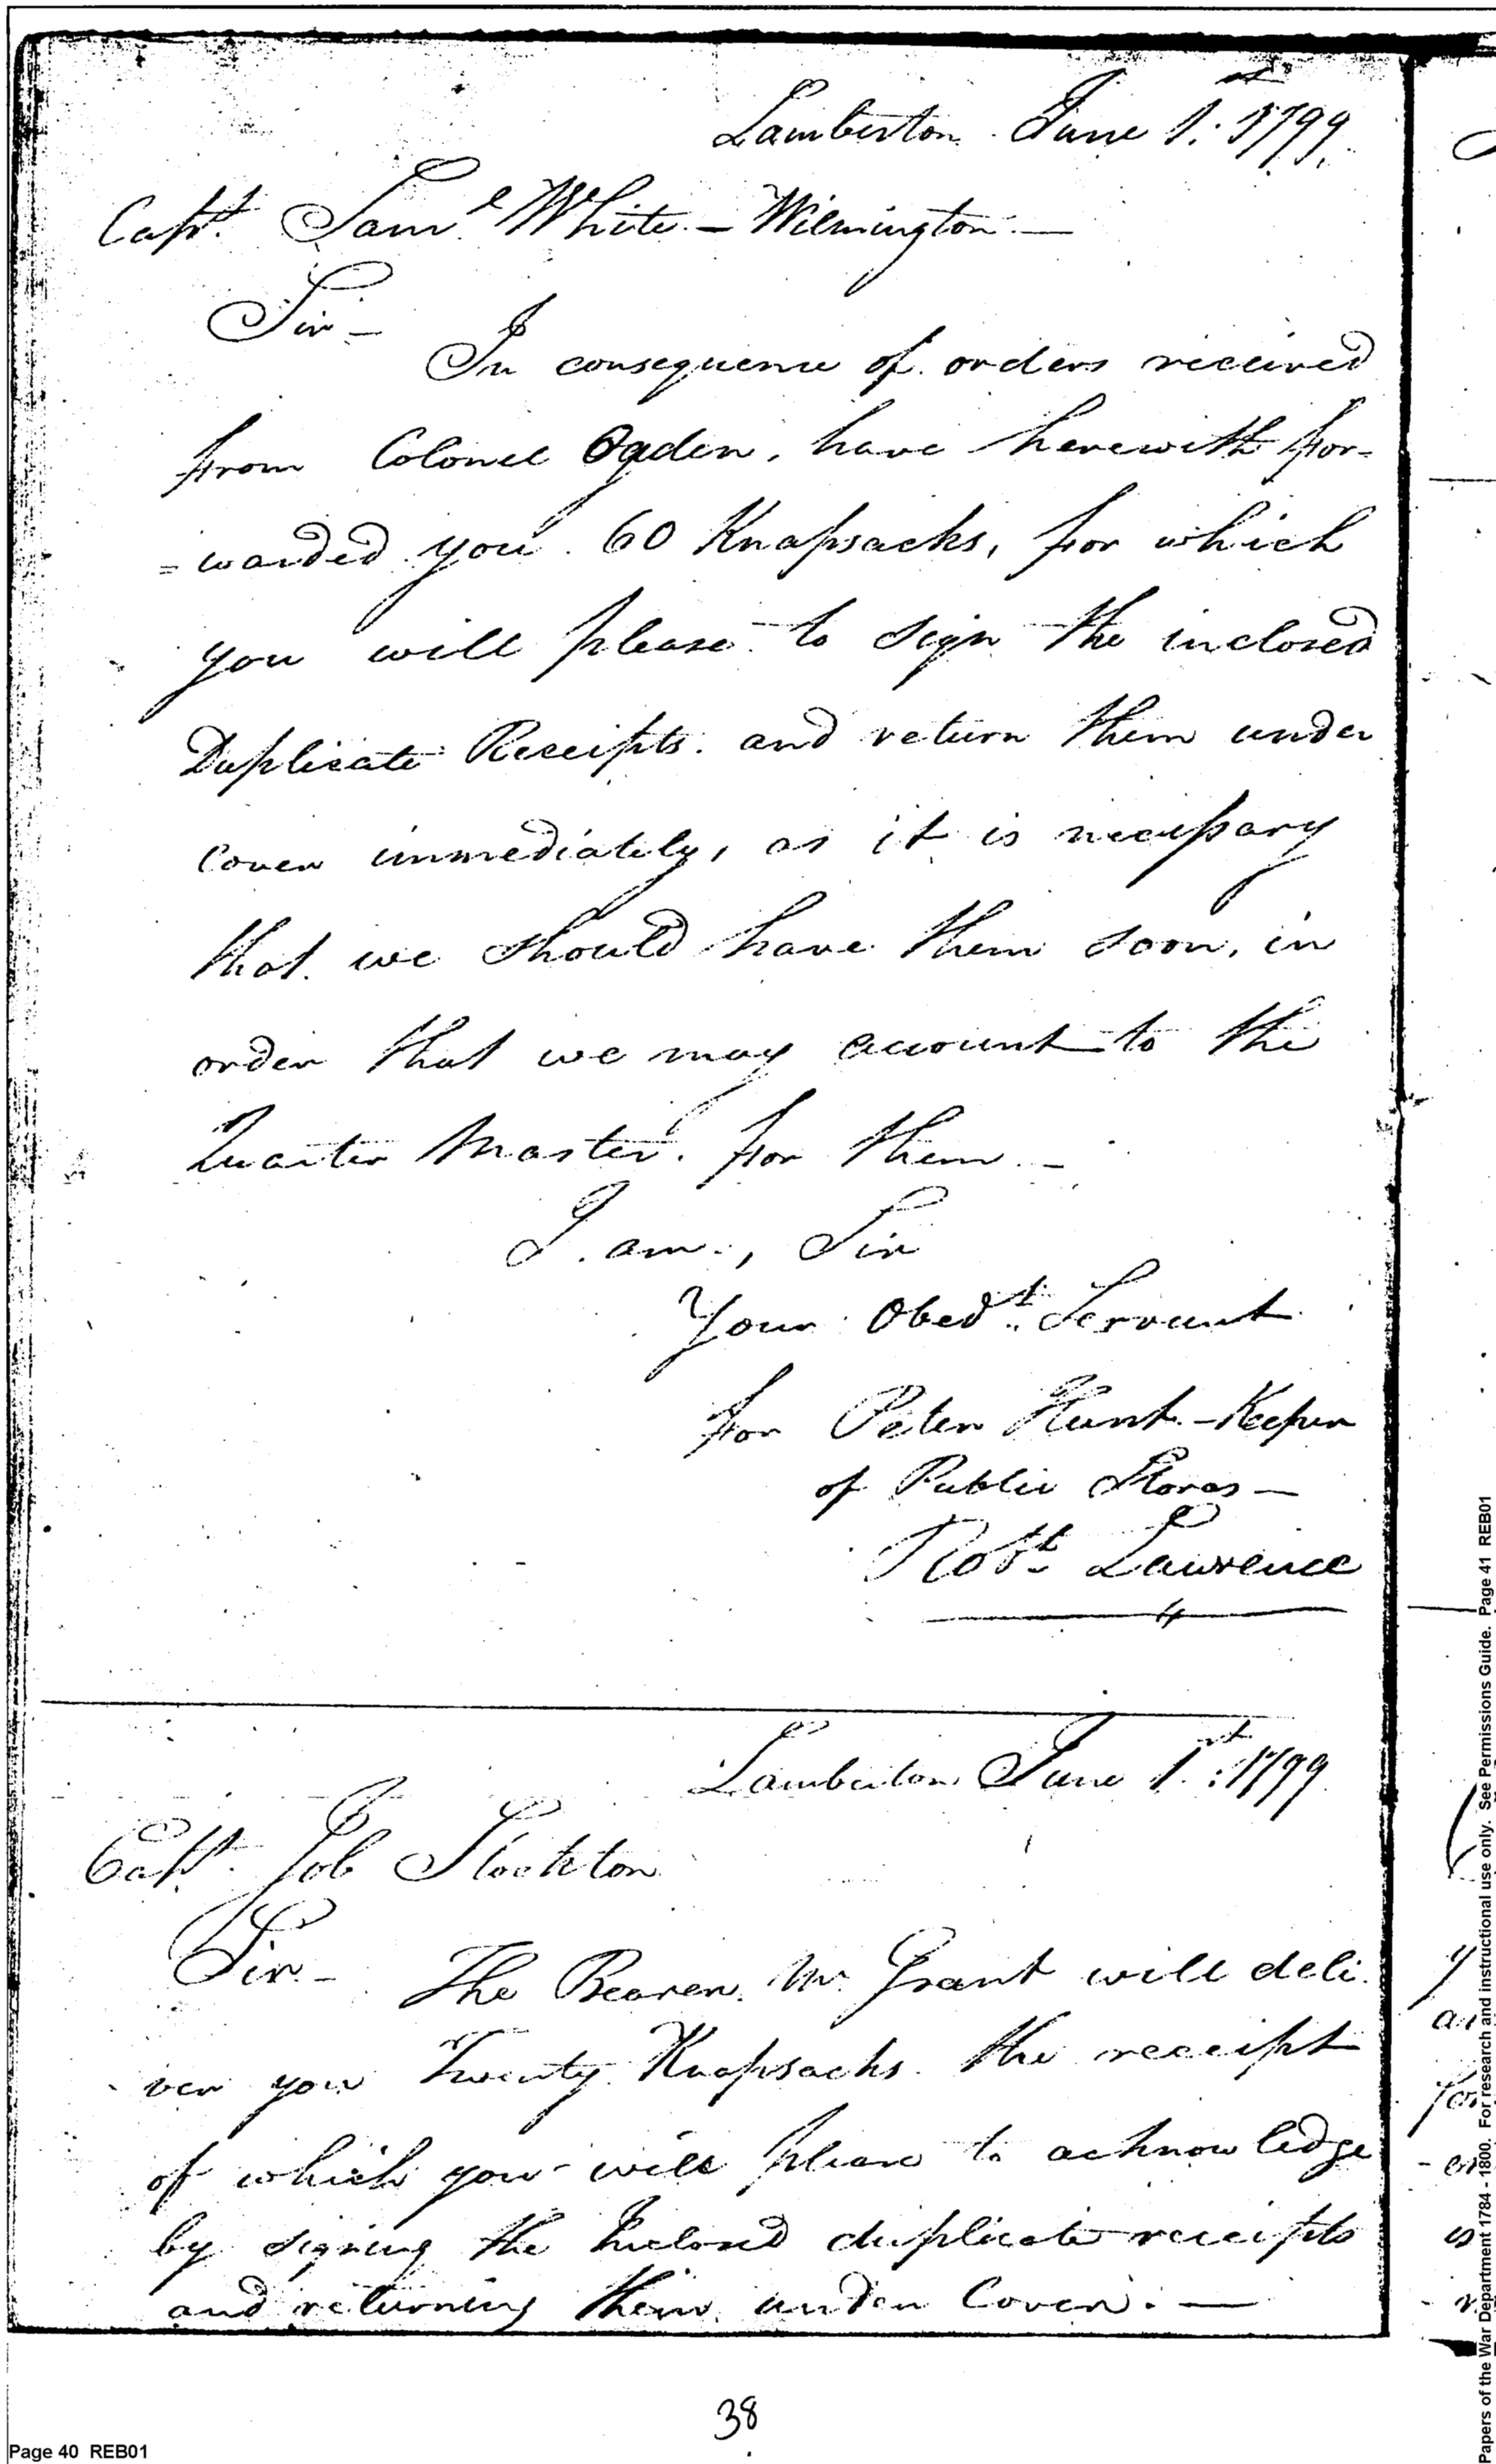 Lamberton June 1st: 1799.
Capt. Saml White - Wilmington. -
Sir -
In consequence of orders received
from Colonel Ogden, have herewith for-
=warded you 60 Knapsacks, for which
you will please to sign the inclosed
Duplicate Receipts. and return them under
Cover immediately, as it is necessary
that we should have them soon, in
order that we may account to the
Quarter Master. for them. -
I. am., Sir
Your Obedt. Servant
for Peter Hunt - Keeper
of Public Stores -
Robt. Lawrence
Lamberton June 1st: 1799
Capt. Job Stockton
Sir - The Bearer. Mr. Grant will deli-
ver you Twenty Knapsacks. the receipt
of which you will please to acknowledge
by signing the Inclosed duplicate receipts
and returning them under Cover. -
38
Page 40 REB01
Papers of the War Department 1784 - 1800. For research and instructional use only. See Permissions Guide. Page 41 REB01